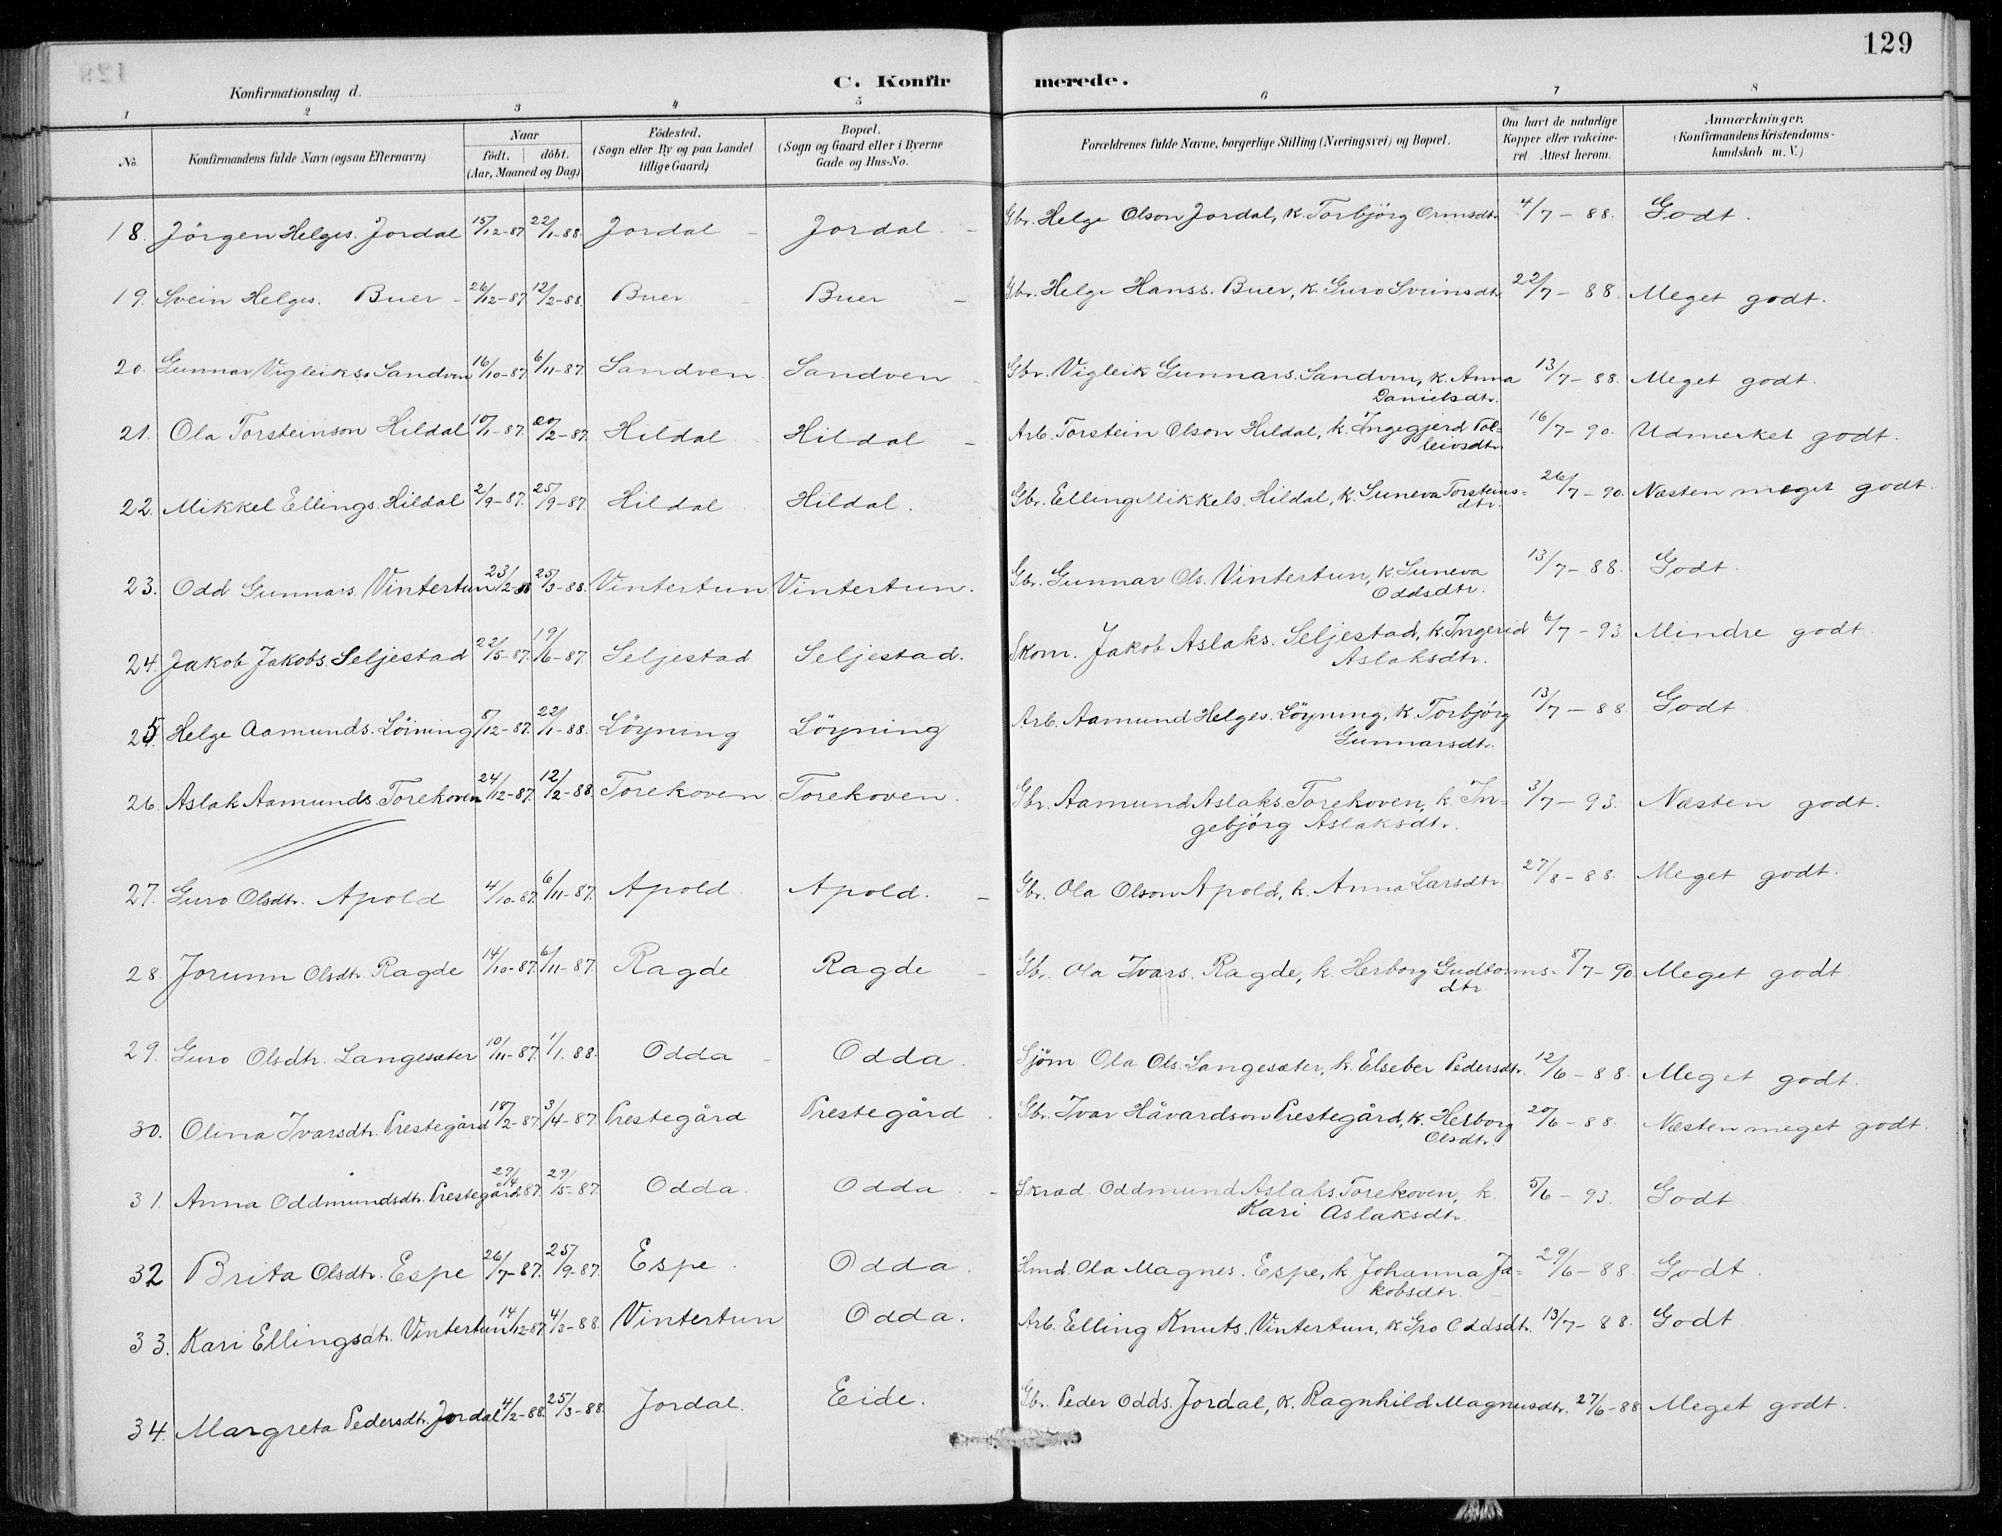 129
C. Konfirmerede.
Konfirmationsdag d.
1 2 3 4 5 6 7 8
No. Konfirmandens fulde Navn (ogsaa Efternavn) Naar født. døbt. (Aar, Maaned og Dag) Fødested. (Sogn eller By og paa Landet tillige Gaard) Bopæl. (Sogn og Gaard eller i Byerne Gade og Hus-No. Forældrenes fulde Navne, borgerlige Stilling (Næringsvei) og Bopæl. Om havt de naturlige Kopper eller vakcineret Attest herom. Anmærkninger. (Konfirmandens Kristendomskundskab m. V.)
18. Jörgen Helges. Jordal 15/12-87 22/1-88. Jordal Jordal Gbr. Helge Olson Jordal, k. Torbjörg Ormsdt. 4/7-88. Godt.
19. Svein Helges. Buer 26/12-87. 12/2-88. Buer Buer Gbr. Helge Hanss. Buer, k. Guro Sveinsdt. 22/7-88. Meget godt.
20. Gunnar Vigleiks. Sandven 16/10-87. 6/11-87. Sandven. Sandven Gbr. Vigleik Gunnars. Sandven, k. Anna 13/7-88. Meget godt.
Danielsdtr.
21. Ola Torsteinson Hildal 10/1-87. 20/2-87. Hildal Hildal Arb. Torstein Olson Hildal, k. Ingegjerd Tol= 16/7-90. Udmerket godt.
leivsdtr.
22. Mikkel Ellings. Hildal 2/9-87. 25/9-87. Hildal Hildal. Gbr. Elling Mikkels. Hildal, k. Suneva Torsteins= 26/7-90. Næsten meget godt.
dtr.
23. Odd Gunnars. Vintertun 23/2-88 25/3-88. Vintertun Vintertun. Gbr. Gunnar Ols. Vintertun, k. Suneva 13/7-88. Godt.
Oddsdtr.
24. Jakob Jakobs. Seljestad 22/5-87. 19/6-87. Seljestad Seljestad. Skom. Jakob Aslaks. Seljestad, k. Ingerid 6/7-93. Mindre godt.
Aslaksdtr.
25. Helge Aamunds. Löining 5/12-87. 22/1-88. Löyning Löyning Arb. Aamund Helges. Löyning, k. Torbjörg 13/7-88 Godt
Gunnarsdt.
26. Aslak Aamunds. Torekoven 24/12-87. 12/2-88. Torekoven Torekoven. Gbr. Aamund Aslaks. Torekoven, k. In= 3/7-93. Næsten godt.
gebjörg Aslaksdtr.
27. Guro Olsdtr. Apold 4/10-87. 6/11-87. Apold. Apold. Gbr. Ola Olson Apold, k. Anna Larsdtr. 27/8-88. Meget godt.
28. Jorunn Olsdtr. Ragde 14/10-87. 6/11-87. Ragde Ragde Gbr. Ola Ivars. Ragde, k. Herborg Gudtorms= 8/7-90. Meget godt
dtr.
29. Guro Olsdtr. Langesæter 10/11-87. 1/1.88. Odda Odda. Sjöm Ola Ols. Langesæter, k. Elseber Pedersdtr. 12/6-88. Meget godt.
30. Olina Ivarsdtr. Prestegård 18/2-87. 3/4-87. Prestegård Prestegård. Gbr. Ivar Håvardson Prestegård, k. Herborg 20/6-88. Næsten meget godt.
Olsdtr.
31. Anna Oddmundsdtr. Prestegård 29/4 87. 29/5-87. Odda. Odda. Skræd. Oddmund Aslaks. Torekoven, k. 5/6-93. Godt
Kari Aslaksdtr.
32 Brita Olsdtr. Espe 26/7-87. 25/9-87. Espe. Odda. Hmd. Ola Magnes. Espe, k. Johanna Ja= 29/6-88. Godt.
kobsdtr.
33. Kari Ellingsdtr. Vintertun 14/12-87. 4/3-88. Vintertun Odda. Arb. Elling Knuts. Vintertun, k. Gro Oddsdt. 13/7-88. Godt.
34. Margreta Pedersdtr. Jordal 4/2-88. 25/3-88. Jordal. Eide. Gbr. Peder Odds. Jordal, k. Ragnhild Magnusdtr. 27/6-88. Meget godt.